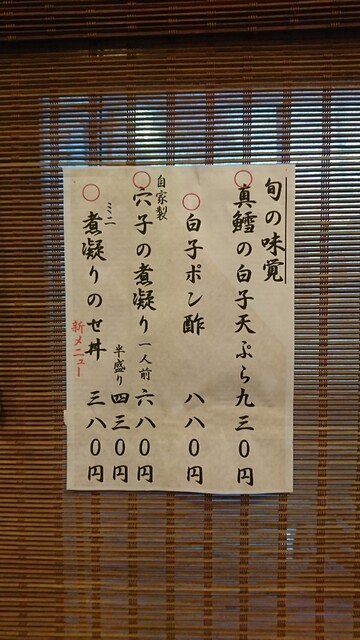 旬の味覚
○真鱈の白子天ぷら九三〇円
○白子ポン酢 八八〇円
自家製
○穴子の煮凝り 一人前 六八〇円
半盛り 四三〇円
ミニ
○煮凝りのせ丼 三八〇円
新メニュー